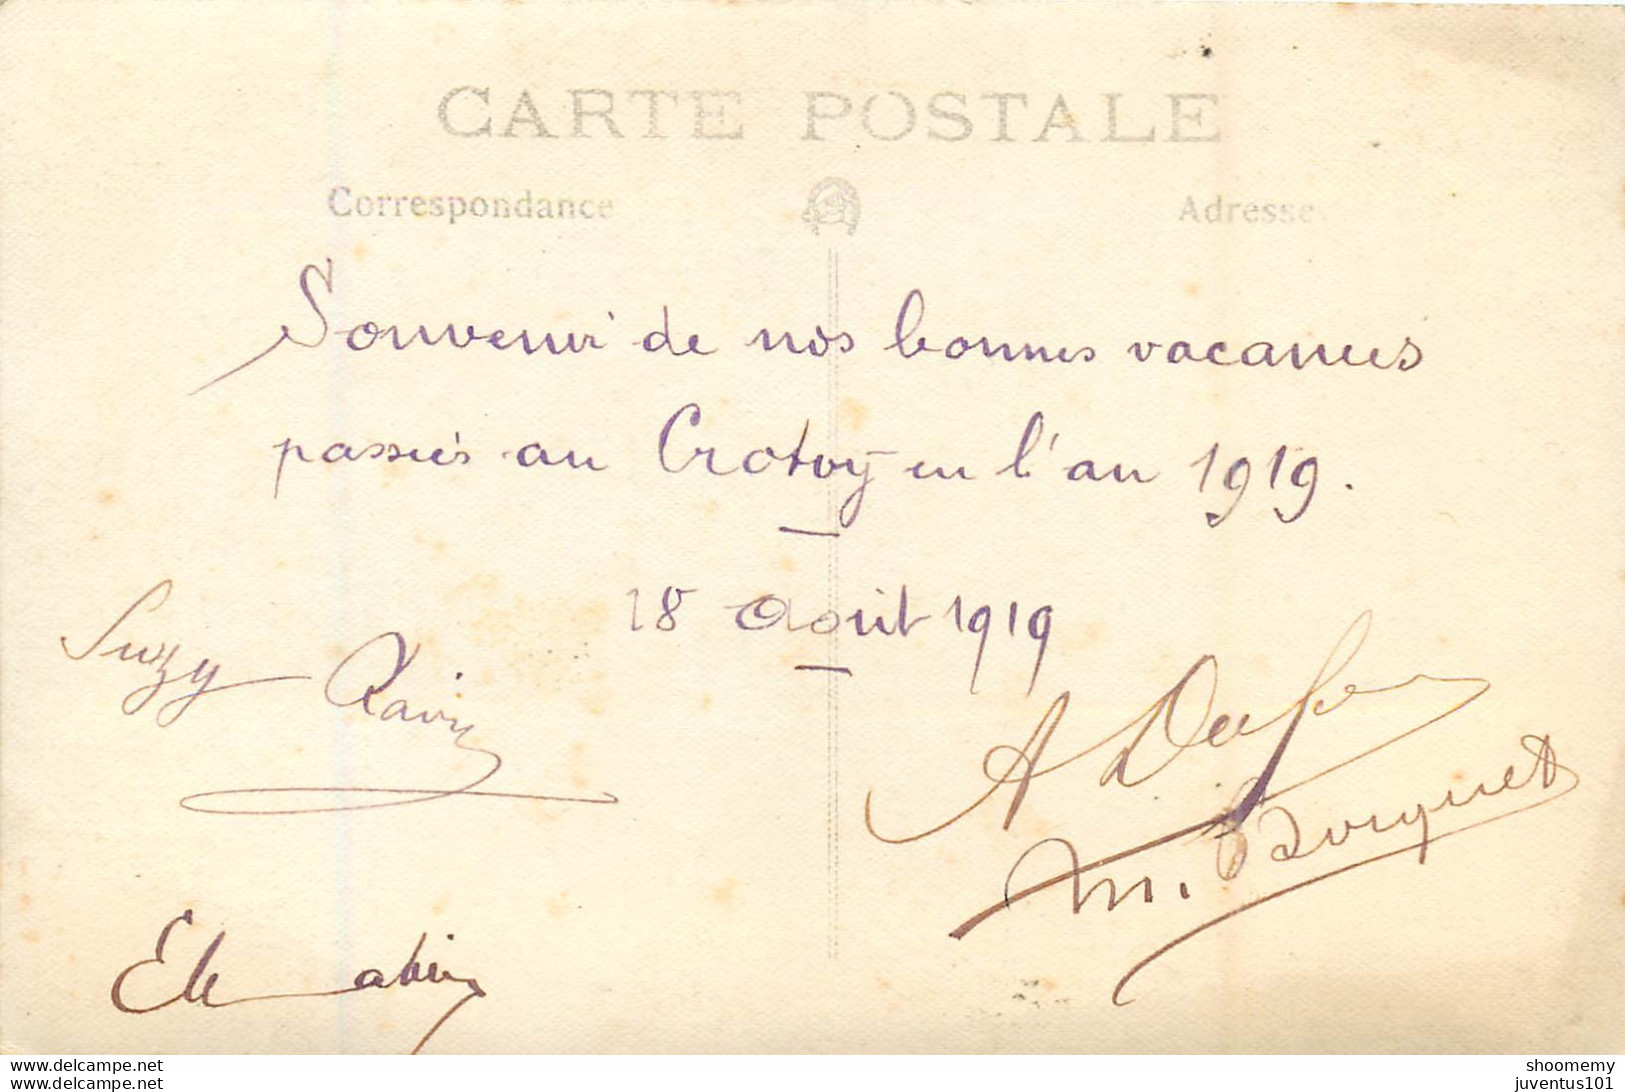 CARTE POSTALE
Correspondance
Adresse
Souvenir de nos bonnes vacances
passées au Crotoy en l'an 1919.
18 Août 1919
Suzy
A
M. Bouquet
www.delcampe.net
shoomemy
juventus101